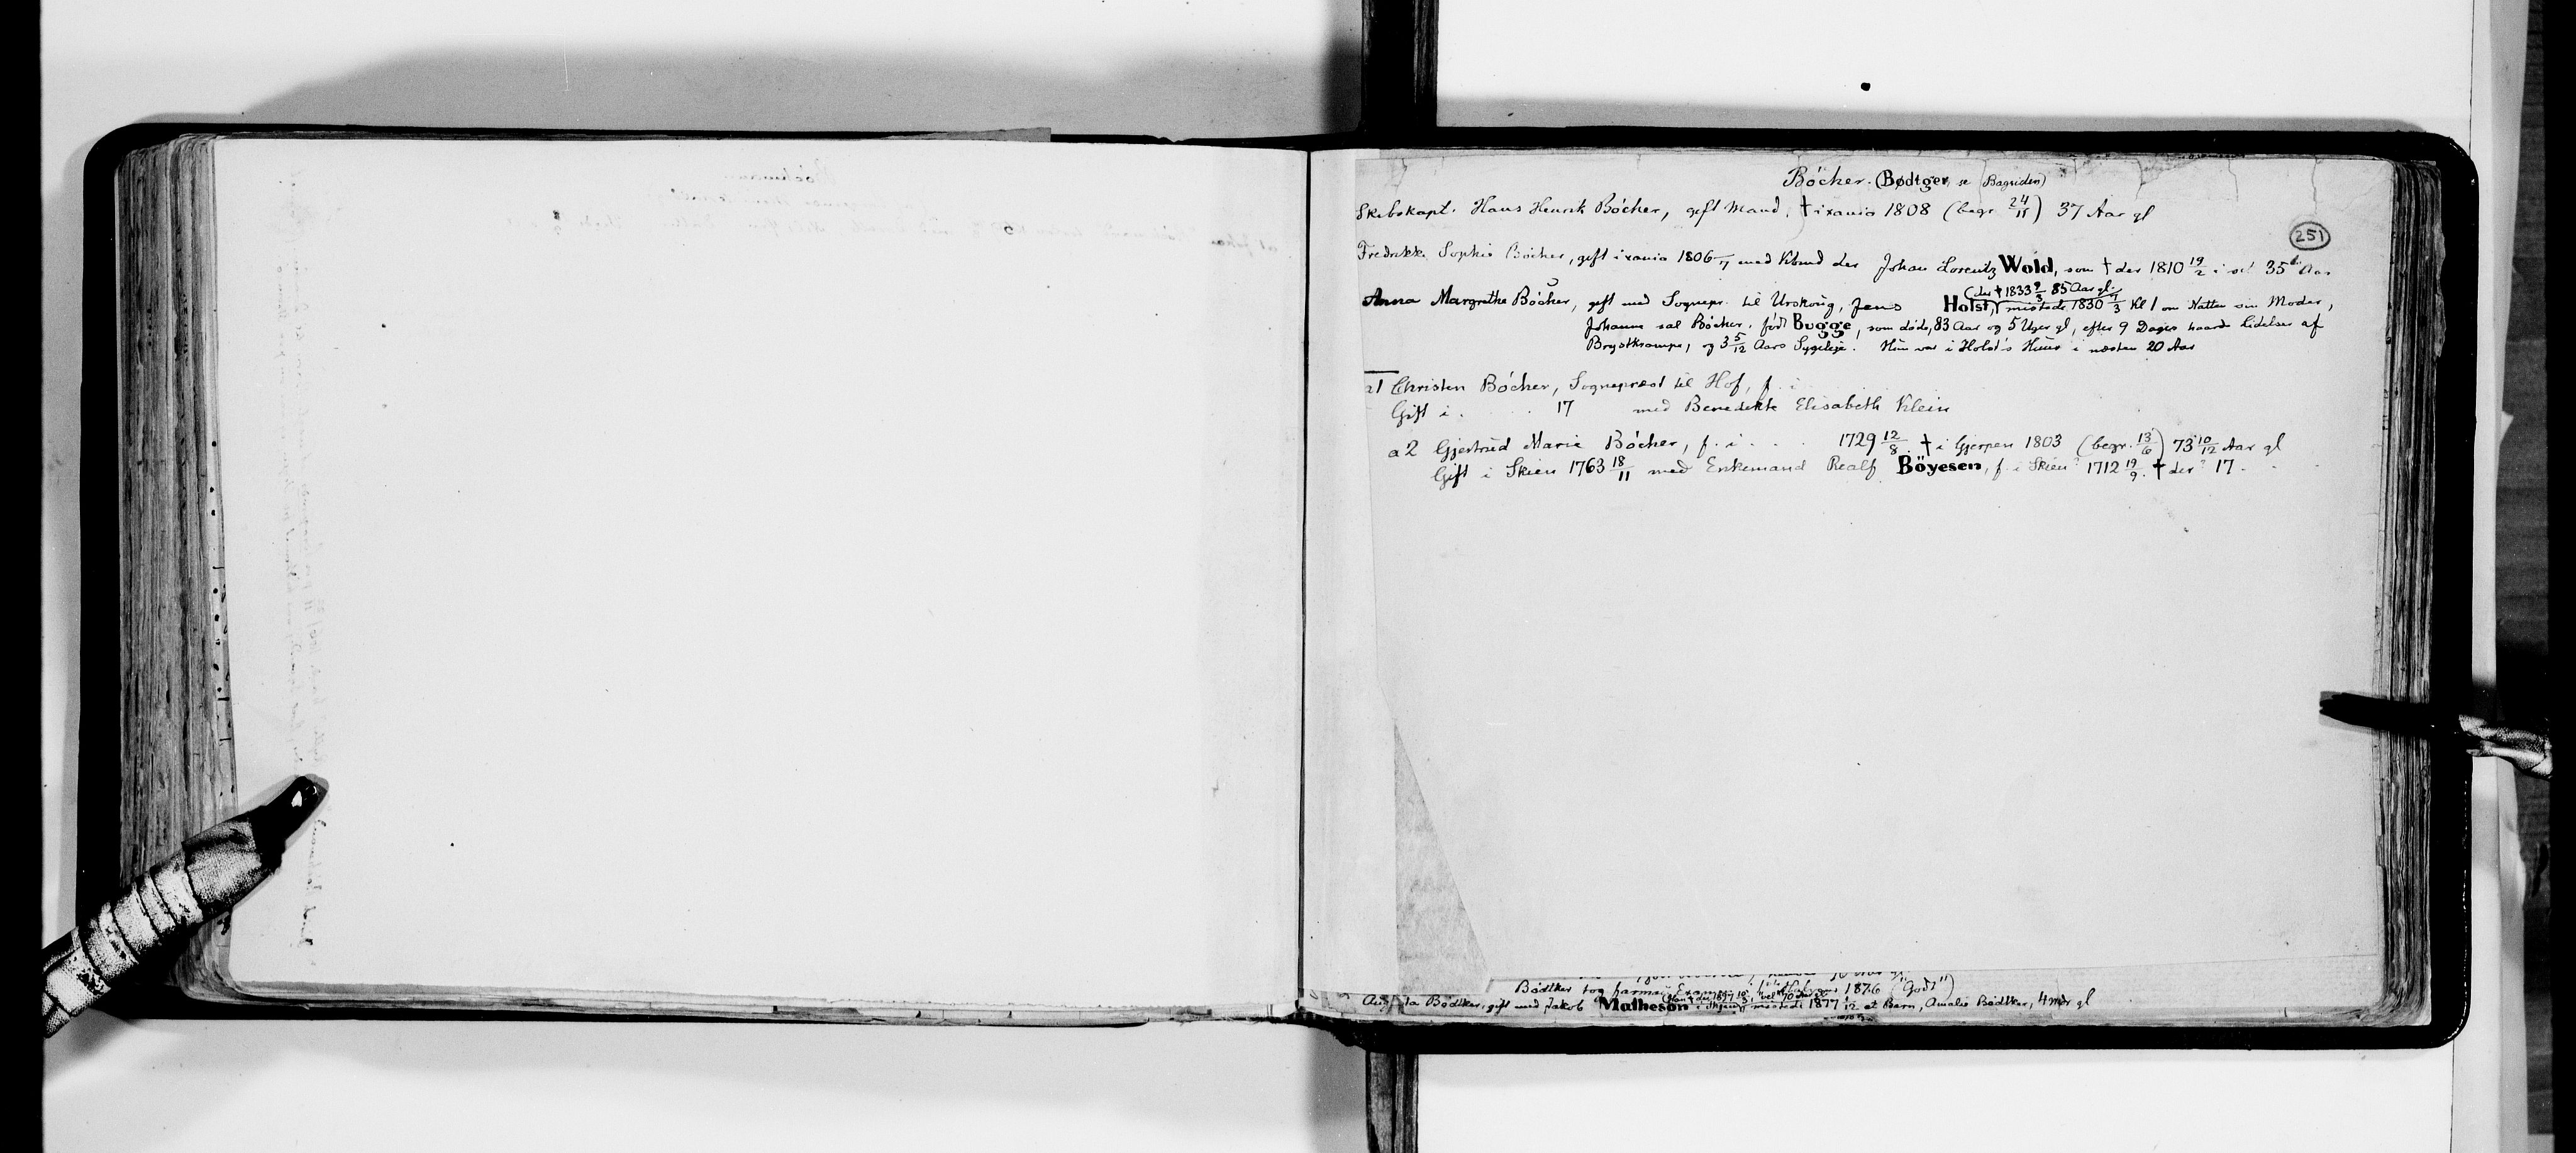 Böcher. (Bødtger, se Bagsiden)
Skibskapt. Hans Henrik Böcher, gift Mand, † i xania 1808 (begr. 24/11) 37 Aar gl
251
Fredrikke Sophie Böcher, gift i xania 1806 /7 med Kbmd der Johan Lorentz Wold, som † der 1810 19/2 i sit 35te Aar
(der † 1833 9/3 85 Aar gl)
Anna Margrethe Böcher, gift med Sognepr. til Urskoug, Jens Holst, mistede 1830 /3 Kl 1 om Natten sin Moder,
Johanne sal Böcher, født Bugge, som døde, 83 Aar og 5 Uger gl, efter 9 Dages haarde Lidelser af
Brystkrampe, og 3 5/12 Aars Sygeleje. Hun var i Holst's Huus i næsten 20 Aar
a1 Christen Böcher, Sognepræst til Hof, f. i
Gift i . . . 17 med Benedikte Elisabeth Klein
a2 Gjertrud Marie Böcher, f. i . . . 1729 12/8. † i Gjerpen 1803 (begr. 13/6) 73 10/12 Aar gl
Gift i Skien 1763 18/11 med Enkemand Realf Böyesen, f. i Skien? 1712 19/9. † der? 17 . . .
Bødtker tog farmac. Examen 1876 ("Godt")
Bødtker, gift med Jakob Matheson i mistede 1877 /12 et Barn, Amalie Bødtker, 4 Mdr gl